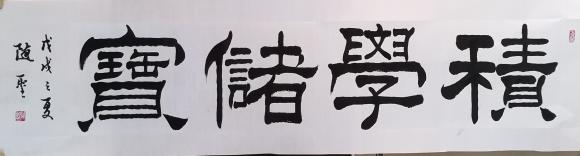 積學儲寶
戊戌之夏